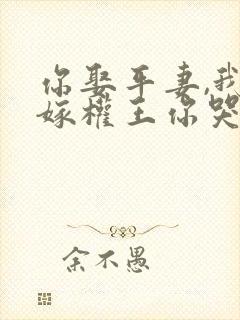 你娶平妻,我
嫁权王你哭
余不愚